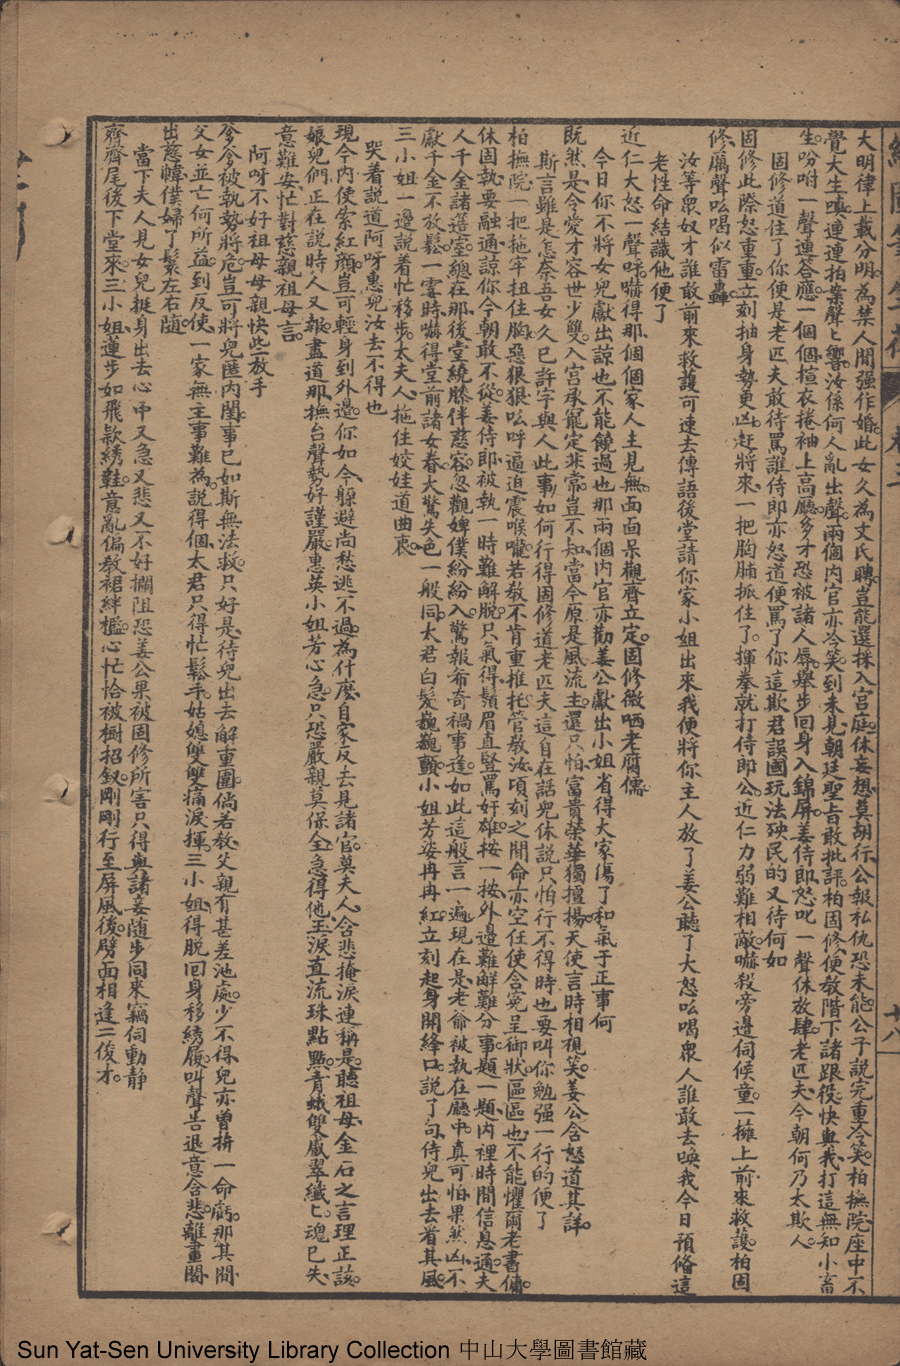 大明律上載分明。為禁人間强作婚。此女久為文氏聘。豈能選採入宫庭。休妄想莫胡行。公報私仇恐未能。公子説完重冷笑。柏撫院座中不
覺大生嗔。連連拍案聲聲响。汝係何人亂出聲。兩個内官亦冷笑。到未見朝廷聖旨敢批評。柏固修便教階下諸跟役。快與我打這無知小畜
生。吩咐一聲連答應。一個個揎衣捲袖上高廳。多才恐被諸人辱。舉步回身入錦屏。姜侍郎怒叱一聲休放肆。老匹夫今朝何乃太欺人。
固修道住了你便是老匹夫敢待罵誰侍郎亦怒道便罵了你這欺君誤國玩法殃民的又待何如
固修此際怒重重。立刻抽身勢更凶。赶將來一把胸脯抓住了。揮拳就打侍郎公。近仁力弱難相敵。嚇殺旁邊伺候童。一擁上前來救護。柏固
修厲聲吆喝似雷轟。
汝等衆奴才誰敢前來救護可速去傳語後堂請你家小姐出來我便將你主人放了姜公聽了大怒吆喝衆人誰敢去喚我今日預備這
老性命結識他便了
近仁大怒一聲哮。嚇得那個個家人主見無。面面呆觀齊立定。固修微哂老腐儒。
今日你不將女兒獻出諒也不能饒過也那兩個内官亦勸姜公獻出小姐省得大家傷了和氣于正事何
既然是令愛才容世少雙。入宫承寵定非常。豈不知當今原是風流主。還只怕富貴榮華獨擅揚。天使言時相視笑。姜公含怒道其詳。
斯言雖是怎奈吾女久已許字與人此事如何行得固修道老匹夫這自在話兒休説只怕行不得時也要叫你勉强一行的便了
柏撫院一把拖牢扭住胸。惡狠狠吆呼逼迫震喉嚨。若教不肯重推托。管教汝頃刻之間命亦空。任使含寃呈御狀。區區也不能懼爾老書傭。
休固執要融通。諒你今朝敢不從。姜侍郎被執一時難解脱。只氣得鬚眉直竪罵奸雄。按一按外邊難解難分事。題一題内裡時間信息通。夫
人千金諸莲室。總在那後堂繞膝伴慈容。忽觀婢僕紛紛入。驚報希奇禍事逢。如此這般言一遍。現在是老爺被執在廳中。真可怕果然凶。不
獻千金不放鬆。一霎時嚇得堂前諸女眷。大驚失色一般同。太君白髮巍巍顫。小姐芳姿冉冉紅。立刻起身開絳口。説了句侍兒出去看其風。
三小姐一邊説着忙移步。太夫人拖住姣娃道曲衷。
哭着説道阿呀惠兒汝去不得也
現今内使索紅顔。豈可輕身到外邊。你如今躲避尚愁逃不過。為什麽自家反去見諸官。莫夫人含悲掩淚連稱是。聽祖母金石之言理正該。
娘兒們正在説時人又報。盡道那撫台聲勢好謹嚴。惠英小姐芳心急。只恐嚴親莫保全。急得他玉淚直流珠點點。青蛾雙蹙翠纖纖。魂已失
意難安。忙對慈親祖母言。
阿呀不好祖母母親快些放手
爹爹被執勢將危。豈可將兒匿内閨。事已如斯無法救。只好是待兒出去解重圍。倘若教父親有甚差池處。少不得兒亦曾拚一命虧。那其間
父女並亡何所益。到反使一家無主事難為。説得個太君只得忙鬆手。姑媳雙雙痛淚揮。三小姐得脱回身移綉履。叫聲告退意含悲。離畫閣
出慈幃。僕婦丫鬟左右隨
當下夫人見女兒挺身出去心中又急又悲又不好攔阻恐姜公果被固修所害只得與諸妾随步同來竊伺動静
齊齊尾後下堂來。三小姐蓮步如飛款綉鞋。意亂偏教裙絆檻。心忙恰被樹招釵。剛剛行至屏風後。劈面相逢二俊才。
卷三
廿八
Sun Yat-Sen University Library Collection 中山大學圖書館藏